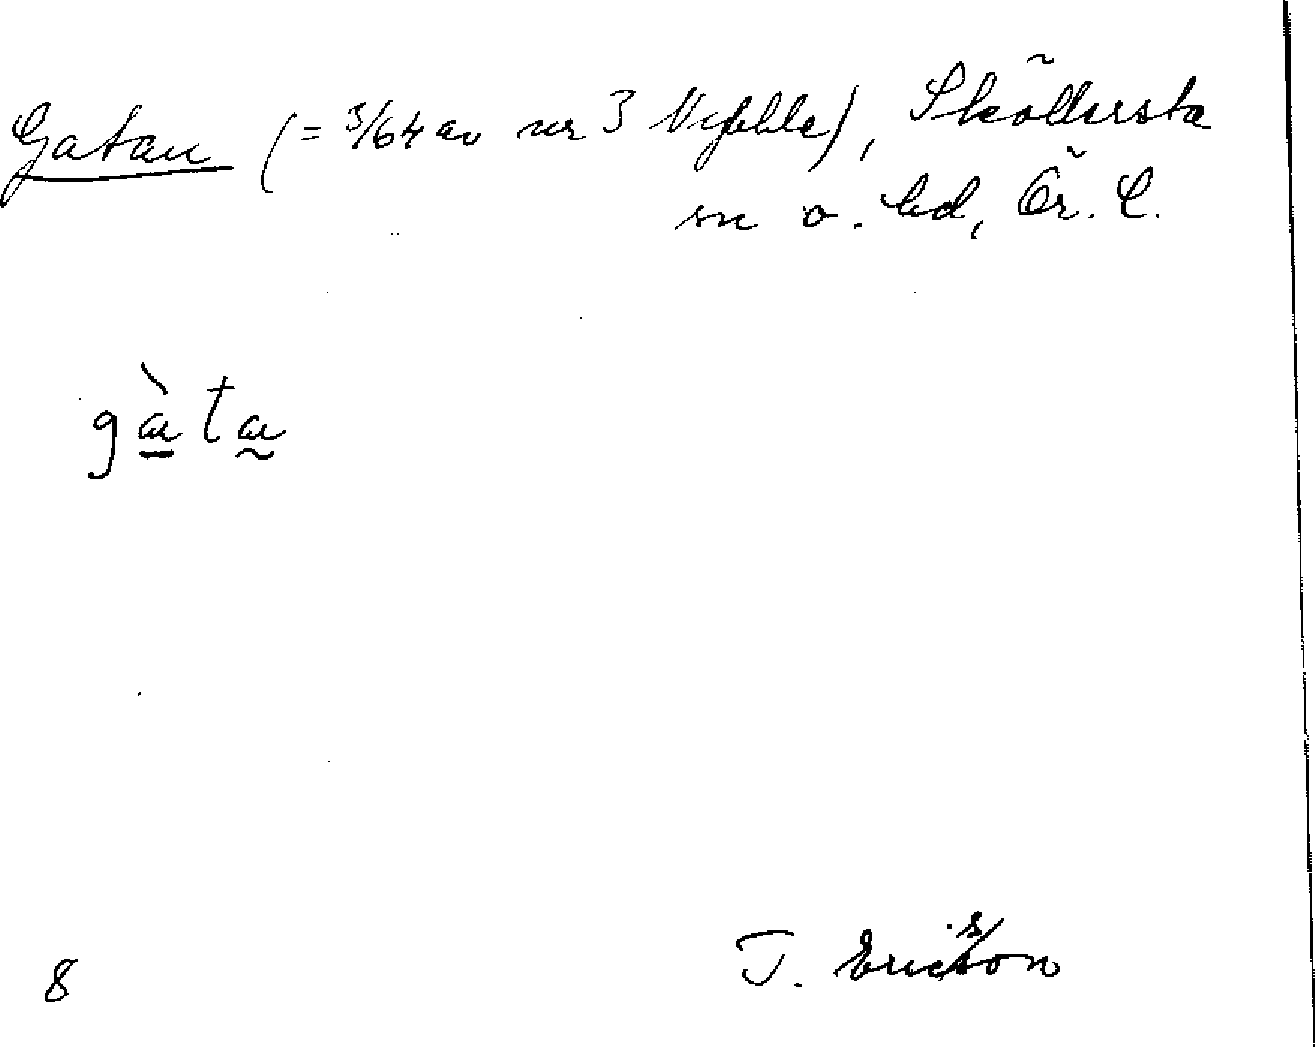 Gatan (= 3/64 av nr 3 Vefalla), Sköllersta
sn o. hd, Ör. l.
gàta
8
T. Ericsson